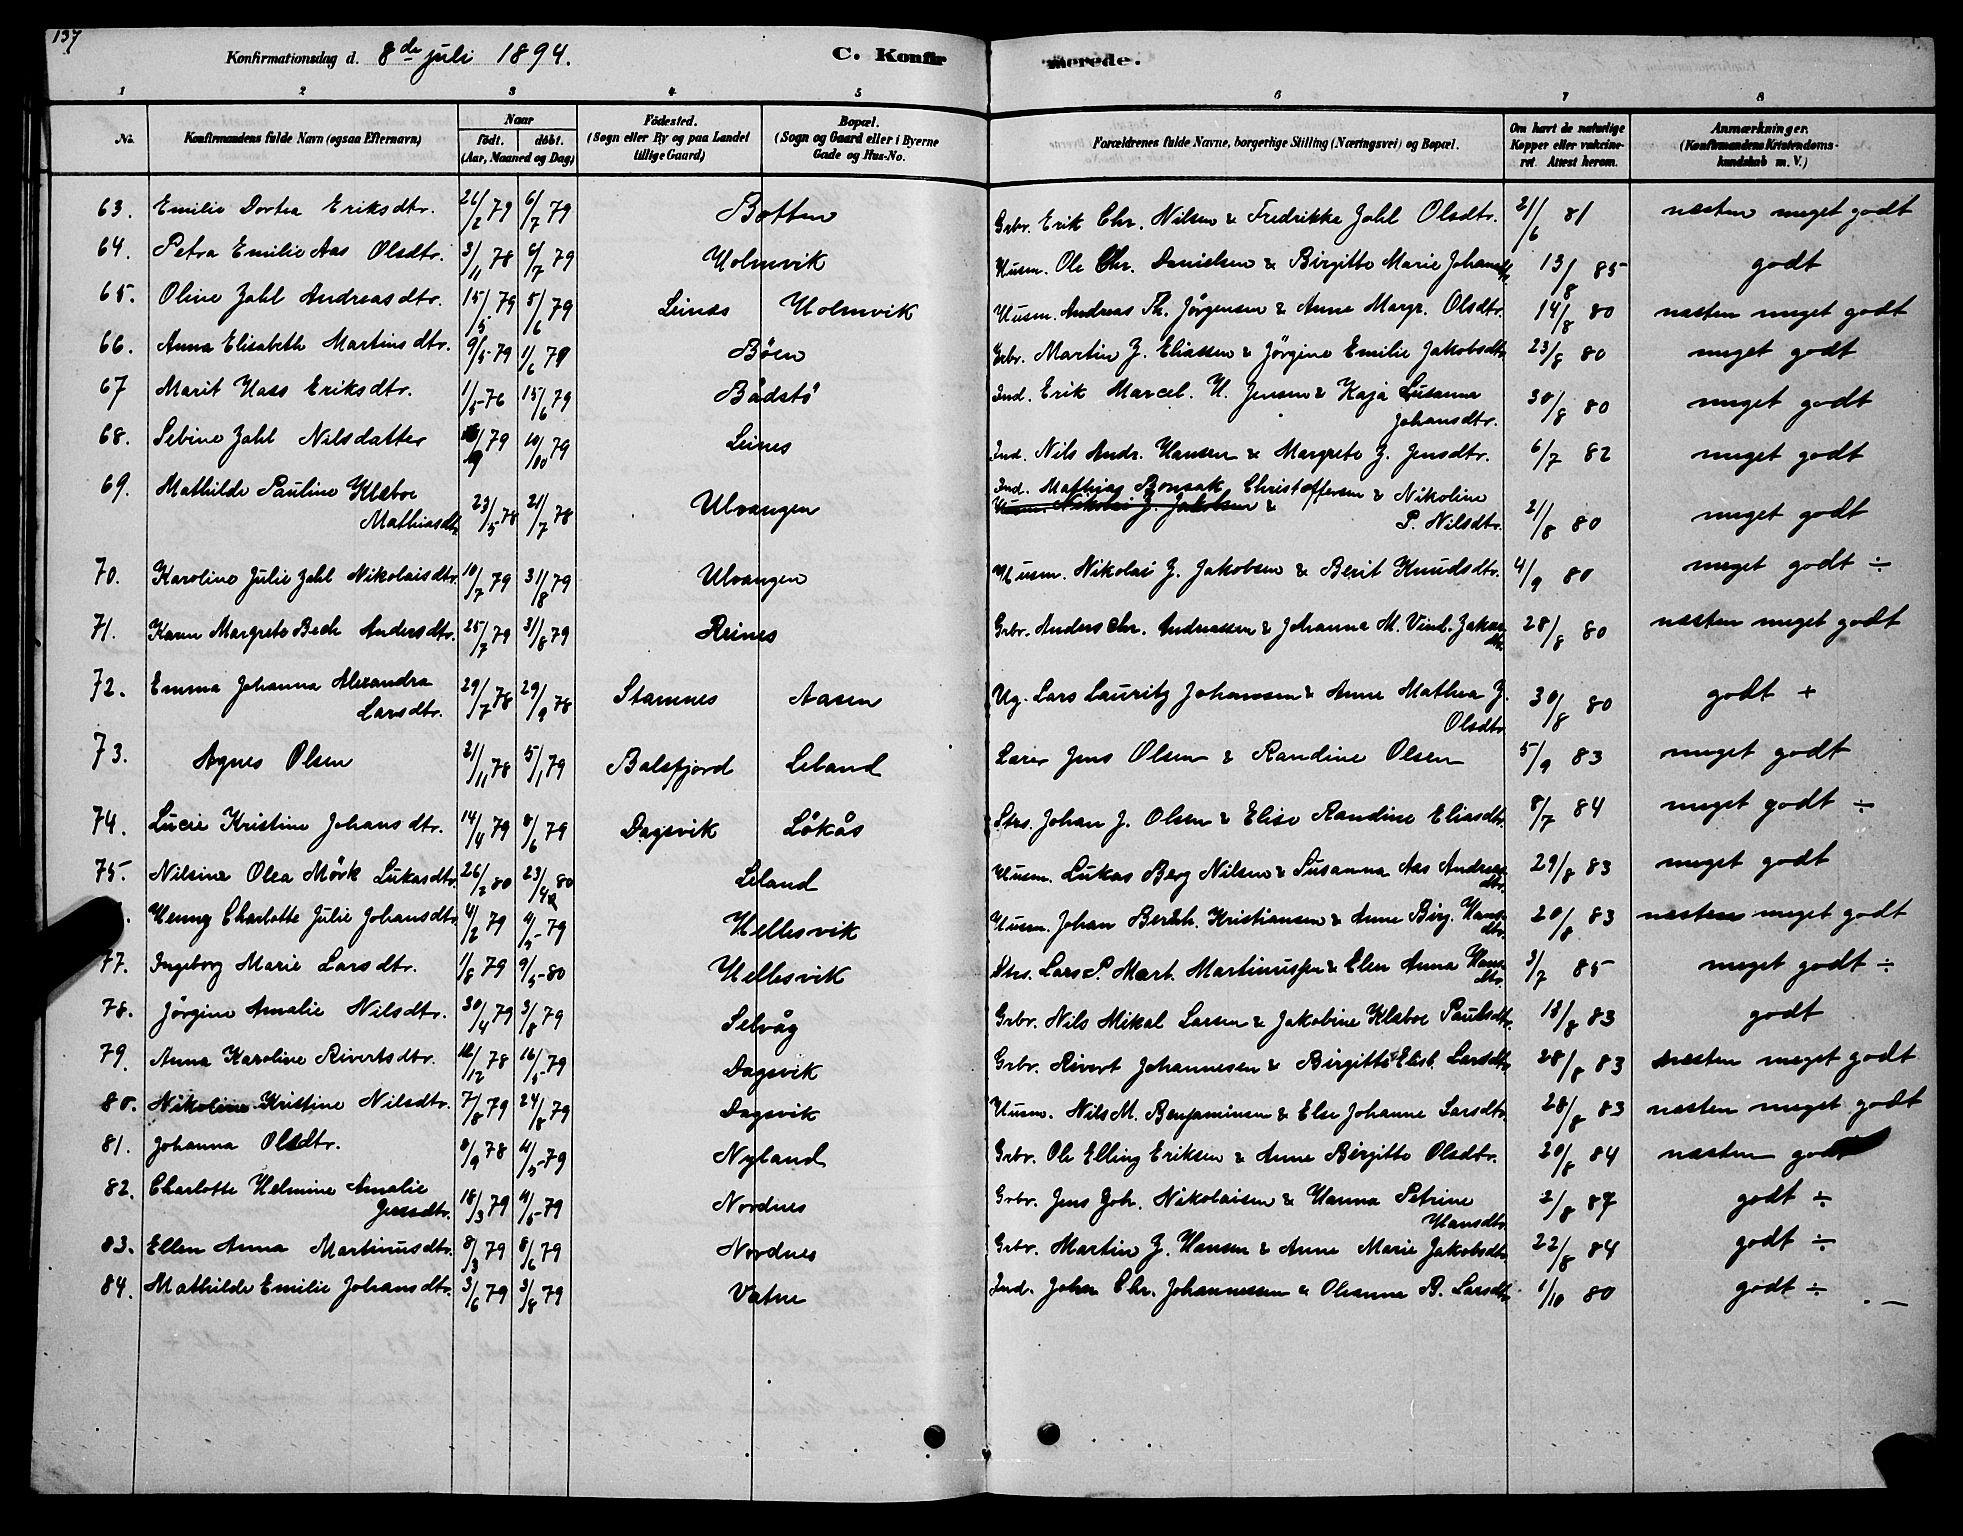 137
Konfirmationsdag d. 8de juli 1894. C. Konfirmerede.
1 2 3 4 5 6 7 8
No. Konfirmandens fulde Navn (ogsaa Efternavn) Naar født. døbt. (Aar, Maaned og Dag) Fødested. (Sogn eller By og paa Landet tillige Gaard) Bopæl. (Sogn og Gaard eller i Byerne Gade og Hus-No. Forældrenes fulde Navne, borgerlige Stilling (Næringsvei) og Bopæl. Om havt de naturlige Kopper eller vakcineret. Attest herom. Anmærkninger. (Konfirmandens Kristendomskundskab m. V.)
63. Emilie Dortea Eriksdtr. 26/2 79 6/7 79 Botten Grbr. Erik Chr. Nilsen & Fredrikke Zahl Olsdtr. 21/6 81 næsten meget godt
64. Petra Emilie Aas Olsdtr. 3/11 78 6/7 79 Holmvik Husm. Ole Chr. Danielsen & Birgitte Marie Johansdtr. 13/8 85 godt
65. Oline Zahl Andreasdtr. 15/5 79 5/6 79 Leines Holmvik Husm. Andreas Th. Jörgensen & Anne Margr. Olsdtr. 14/8 80 næsten meget godt
66. Anna Elisabeth Martinsdtr. 9/5 79 1/6 79 Böen Grbr. Martin Z. Eliassen & Jörgine Emilie Jakobsdtr 23/8 80 meget godt
67 Marit Hass Eriksdtr. 1/5 76 15/6 79 Bådstö Ind. Erik Marcel. H. Jensen & Kaja Susanna Johansdtr. 30/8 80 meget godt
68. Sebine Zahl Nilsdatter /9 79 10/10 79 Leines Ind. Nils Andr. Hansen & Margrete Z. Jensdtr. 6/7 82 meget godt
69. Mathilde Pauline Klæboe Mathiasdtr 23/5 78 21/7 78 Ulvangen Ind. Mathias Bonsak Christoffersen & Nikoline
Husm. Nikolai Z. Jakobsen & P. Nilsdtr. 21/8 80 meget godt
70. Karoline Julie Zahl Nikolaisdtr. 10/7 79 31/8 79 Ulvangen Husm. Nikolai Z. Jakobsen & Berit Knudsdtr. 4/9 80 meget godt ÷
71. Karen Margrete Bech Andersdtr. 25/7 79 31/8 79 Reines Grbr. Anders Chr. Andreassen & Johanna M. Vinb. Jakobsdtr. 28/8 80 næsten meget godt
72. Emma Johanna Alexandra Larsdtr. 29/7 78 29/9 78 Stamnes Aasen Ug. Lars Lauritz Johansen & Anne Mathea Z. Olsdtr 30/8 80 godt +
73. Agnes Olsen 21/11 78 5/1 79 Balsfjord Leland Lærer Jens Olsen & Randine Olsen 5/9 83 meget godt
74. Lucie Kristine Johansdtr. 14/4 79 8/6 79 Dagsvik Lökås Strs. Johan J. Olsen & Elise Randine Eliasdtr. 8/7 84 meget godt ÷
75. Nilsine Olea Mörk Lukasdtr. 26/2 80 23/4 80 Leland Husm. Lukas Berg Nilsen & Susanna Aas Andreasdtr. 29/8 83 meget godt
Henny Charlotte Julie Johansdtr. 4/2 79 4/5 79 Hellesvik Husm. Johan Berth. Kristiansen & Anne Birg. Hansdtr. 20/8 83 næsten meget godt
77. Ingeborg Marie Larsdtr. 1/8 79 9/5 80 Hellesvik Strs. Lars P. Mart. Martinussen & Elen Anna Hansdtr. 3/7 85 meget godt ÷
78. Jörgine Amalie Nilsdtr. 30/4 79 3/8 79 Selvåg Grbr. Nils Mikal Larsen & Jakobine Klæboe Paulsdtr. 18/8 83 godt
79. Anna Karoline Rivertsdtr. 12/12 78 16/5 79 Dagsvik Grbr. Rivert Johannesen & Birgitte Elisb. Larsdtr 28/8 83 næsten meget godt
80. Nikoline Kristine Nilsdtr. 7/8 79 24/8 79 Dagsvik Husm. Nils M. Benjaminsen & Else Johanne Larsdtr. 28/8 83 næsten meget godt
81. Johanna Olsdtr. 8/9 78 4/5 79 Nyland Grbr. Ole Elling Eriksen & Anne Birgitte Olsdtr. 20/8 84 næsten godt
82. Charlotte Helmine Amalie Jensdtr. 18/3 79 4/5 79 Nordnes Grbr. Jens Joh. Nikolaisen & Hanna Petrine Hansdtr 2/8 87 godt ÷
83. Ellen Anna Martinusdtr. 8/3 79 8/6 79 Nordnes Grbr. Martin Z. Hansen & Anne Marie Jakobsdtr. 22/8 84 godt ÷
84. Mathilde Emilie Johansdtr. 3/6 79 3/8 79 Vatne Ind. Johan Chr. Johannessen & Oleanna B. Larsdtr. 1/10 80 godt ÷